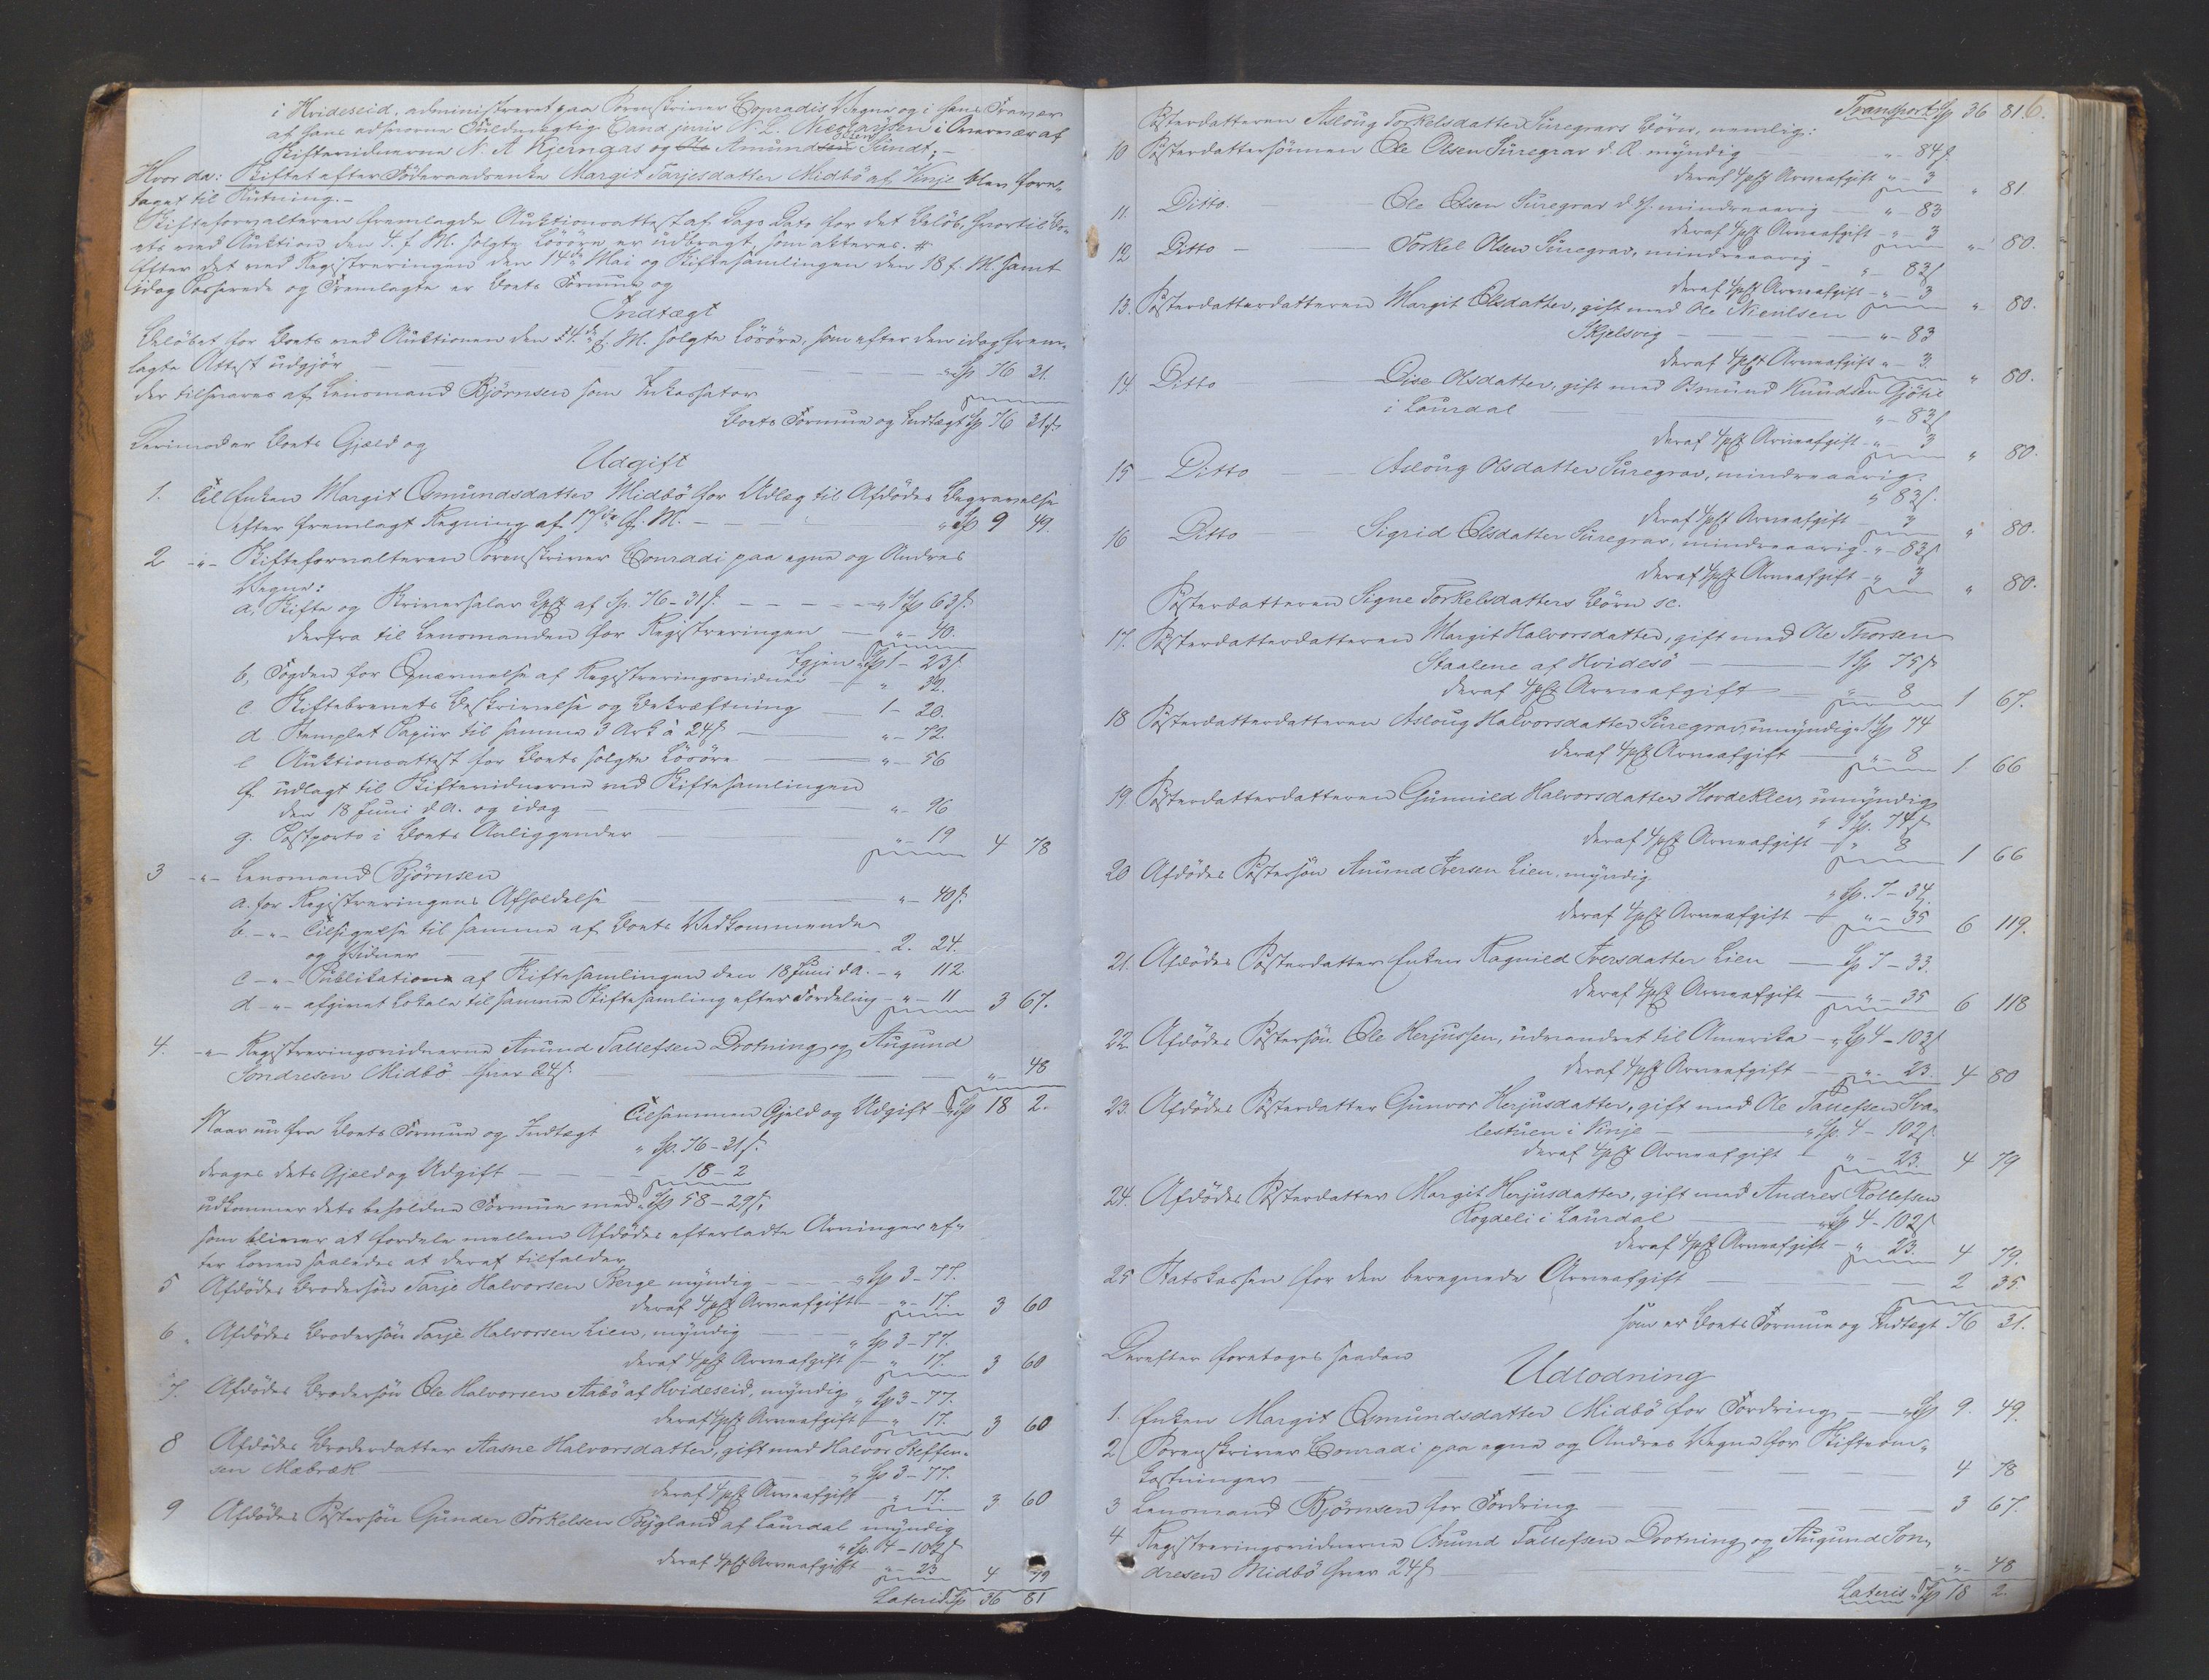 i Hvideseid, administreret paa Sorenskriver Conradis Vegne og i hans Fravær
af hans edsvorne Fuldmægtig Cand. juris N. L. Nicolaysen i Overvær af
Skiftevidnerne N. A. Kjerngas og Amund Sundt; –
Hvor da: Skiftet efter Föderaadsenke Margit Tarjesdatter Midbö af Vinje blev fore-
taget til Slutning. –
Skifteforvalteren fremlagde Auktionsattest af Dags Dato for det Belöb, hvortil Bo-
ets ved Auktion den 4. f. M. solgte Lösöre er udbragt, som akteres. #
Efter det ved Registreringen den 14de Mai og Skiftesamlingen den 18 f. M. samt
idag Passerede og Fremlagte er Boets Formue og
Indtægt
Belöbet for Boets ved Auktionen den 4de f. M. solgte Lösöre, som efter den idag frem-
lagte Attest udgjör — " Sp 76 31.
der tilsvares af Lensmand Björnsen som Inkassator
Boets Formue og Indtægt Sp 76 31 s.
Derimod er Boets Gjæld og
Udgift
1. Til Enken Margit Osmundsdatter Midbö for Udlæg til Afdödes Begravelse
efter fremlagt Regning af 17de f. M. — " Sp 9 49.
2 -"- Skifteforvalteren Sorenskriver Conradi paa egne og Andres
Vegne:
a, Skifte og Skriversalær 2 pCt af Sp. 76-31 s. — 1 Sp 63 s.
derfra til Lensmanden for Registreringen — " 40.
Igjen " Sp 1 - 23 s.
b, Fogden for Opnævnelse af Registreringsvidner — " 32.
c Skiftebrevets Beskrivelse og Bekræftning — 1 - 20.
d Stemplet Papiir til samme 3 Ark à 24 s — " - 72
e Auktionsattest for Boets solgte Lösöre — " - 56
f. udlagt til Skiftevidnerne ved Skiftesamlingen
den 18 Juni d. A. og idag — " - 96
g. Postporto i Boets Anliggender — " - 19 4 78
3 -"- Lensmand Björnsen
a. for Registreringens Afholdelse — " - 40 s.
b. -"- Tilsigelse til samme af Boets Vedkommende
og Vidner — 2. 24.
c -"- Publikation af Skiftesamlingen den 18 Juni d. A. - " 112
d -"- afgivet Lokale til samme Skiftesamling efter Fordeling - " - 11 3 67.
4. -"- Registreringsvidnerne Anund Tallefsen Drotning og Augund
Sondresen Midbö hver 24 s. — " - 48
Tilsammen Gjeld og Udgift " Sp 18 2.
Naar nu fra Boets Formue og Indtægt
" Sp. 76 - 31 s.
drages dets Gjæld og Udgift — 18 - 2
udkommer dets beholdne Formue med " Sp 58 - 29 s,
som bliver at fordele mellem Afdödes efterladte Arvinger ef-
ter Loven saaledes at deraf tilfalder
5 Afdödes Brodersön Tarje Halvorsen Berge myndig — " Sp 3 - 77.
deraf 4 pCt Arveafgift - " - 17. 3 60
6 " Afdödes Brodersön Tarje Halvorsen Lien, myndig
" Sp 3 - 77.
deraf 4 pCt Arveafgift - " 17. 3 60
7. Afdödes Brodersön Ole Halvorsen Aabö af Hvideseid, myndig " Sp 3 - 77.
deraf 4 pCt Arveafgift - " 17. 3 60
8 Afdödes Broderdatter Aasne Halvorsdatter, gift med Halvor Steffen-
sen Mæbræk — " Sp 3 - 77.
deraf 4 pCt Arveafgift - " 17. 3 60
9 Afdödes Söstersön Gunder Torkelsen Bygland af Laurdal myndig
" Sp. 4 - 102 s
deraf 4 pCt Arveafgift - " - 23 4 79
Lateris Sp 36 81
Transport Sp 36 81 6.
Sösterdatteren Asloug Torkelsdatter Suregravs Börn, nemlig:
10 Sösterdattersönnen Ole Olsen Suregrav d. Æ. myndig — " - 84 s
deraf 4 pCt Arveafgift " - 3 " 81
11. Ditto. — Ole Olsen Suregrav d. Y. mindreaarig — " - 83
deraf 4 pCt Arveafgift - " - 3 " 80.
12 Ditto — Torkel Olsen Suregrav, mindreaarig
" - 83 s
deraf 4 pCt Arveafgift - " - 3 " 80.
13. Sösterdatterdatteren Margit Olsdatter, gift med Ole Nienlsen
Skjelsvig — " - 83
deraf 4 pCt Arveafgift " - 3. " 80.
14. Ditto — Dise Olsdatter, gift med Osmund Knudsen Gjötil
i Laurdal — " - 83 s
deraf 4 pCt Arveafgift - " - 3 " 80.
15 Ditto — Asloug Olsdatter Suregrav, mindreaarig.
" 83 s.
deraf 4 pCt Arveafgift - 3 " 80.
16 Ditto — Sigrid Olsdatter Suregrav, mindreaarig - " - 83 s
deraf 4 pCt Arveafgift - " 3 " 80.
Sösterdatteren Signe Torkelsdatters Börn sc.
17. Sösterdatterdatteren Margit Halvorsdatter, gift med Ole Thorsen
Staalene af Hvidesö — 1 Sp 75 s
deraf 4 pCt Arveafgift — " - 8 1 67.
18 Sösterdatterdatteren Asloug Halvorsdatter Suregrav, umyndig " 1 Sp 74
deraf 4 pCt Arveafgift — " - 8 1. 66
19. Sösterdatterdatteren Gunnild Halvorsdatter Hovdeklev, umyndig
" 1 Sp. 74 s
deraf 4 pCt Arveafgift - " 8 1 66
20 Afdödes Söstersön Anund Iversen Lien, myndig.
" Sp. 7 - 34.
deraf 4 pCt Arveafgift - " - 35 6 119.
21. Afdödes Sösterdatter Enken Ragnild Iversdatter Lien — Sp 7 - 33.
deraf 4 pCt Arveafgift — " - 35 6 118
22. Afdödes Söstersön Ole Herjussen, udvandret til Amerika - " Sp 4 - 103 s
deraf 4 pCt Arveafgift — " - 23. 4 80
23. Afdödes Sösterdatter Gunvor Herjusdatter, gift med Ole Tallefsen Sva-
lestuen i Vinje — " Sp. 4 - 102 s.
deraf 4 pCt Arveafgift — " - 23. 4 79
24. Afdödes Sösterdatter Margit Herjusdatter, gift med Andres Rollefsen
Rogdeli i Laurdal — " Sp 4 - 102 s
deraf 4 pCt Arveafgift - " 23. 4 79.
25 Statskassen for den beregnede Arveafgift — 2 35.
som er Boets Formue og Indtægt 76 31.
Derefter foretoges saadan
Udlodning
1. Enken Margit Osmundsdatter Midbö for Fordring — " Sp 9. 49.
2 Sorenskriver Conradi paa egne og Andres Vegne for Skifteom-
kostninger — 4 78
3 Lensmand Björnsen for Fordring — 3 67.
4 Registreringsvidnerne Anund Tallefsen Drotning og Augund Son-
dresen Midbö hver 24 s — " - 48
Lateris " Sp 18 2.